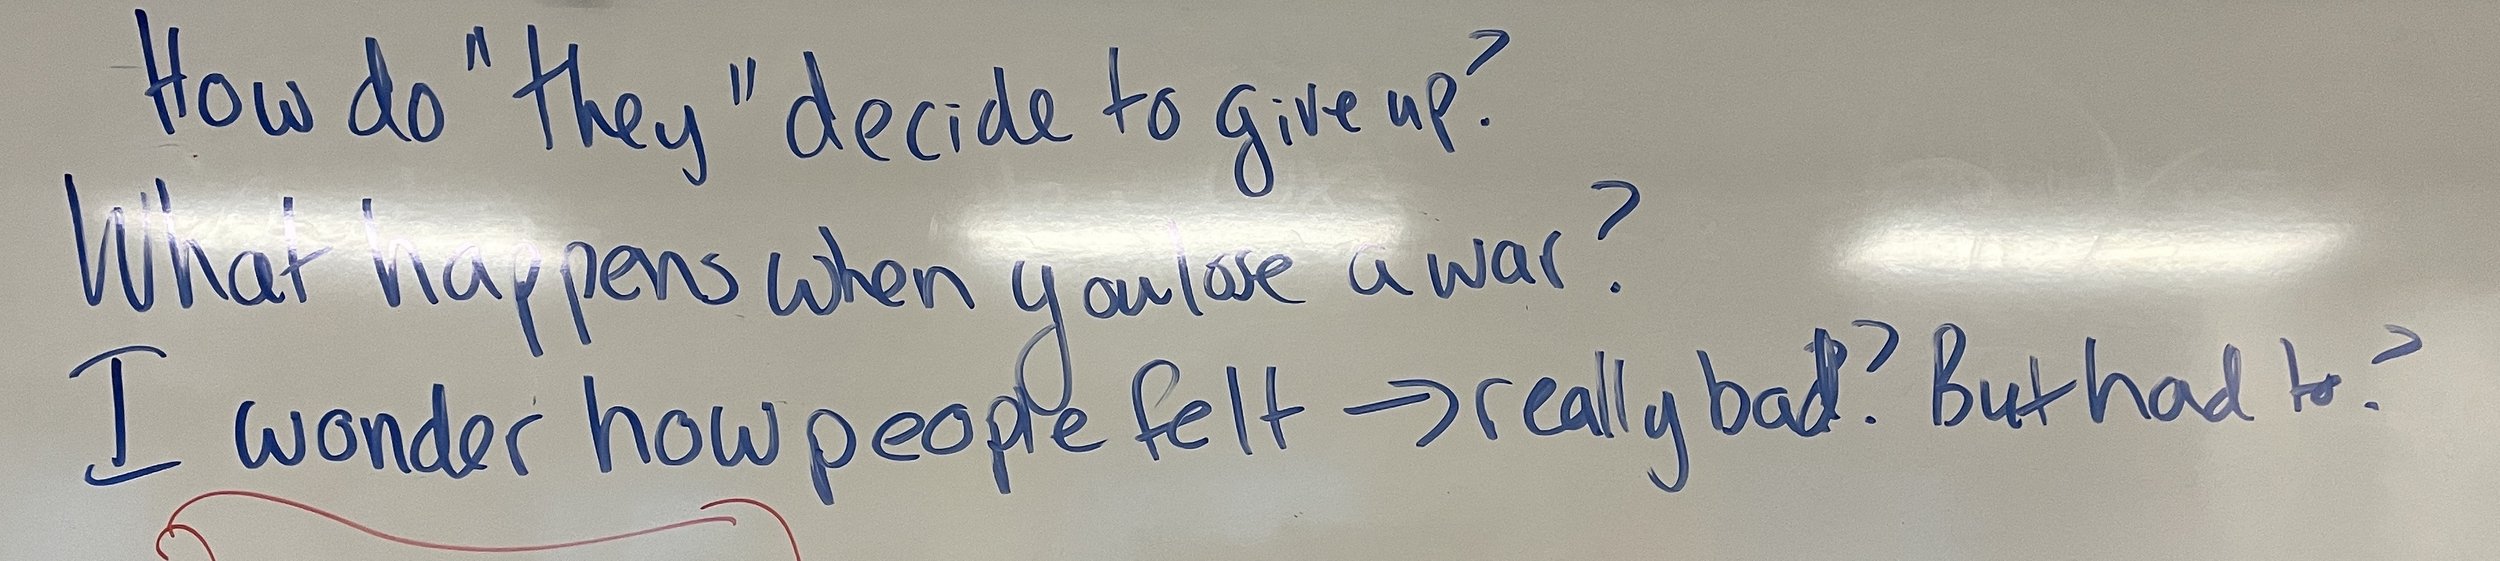 How do "they" decide to give up?
What happens when you lose a war?
I wonder how people felt → really bad? But had to?